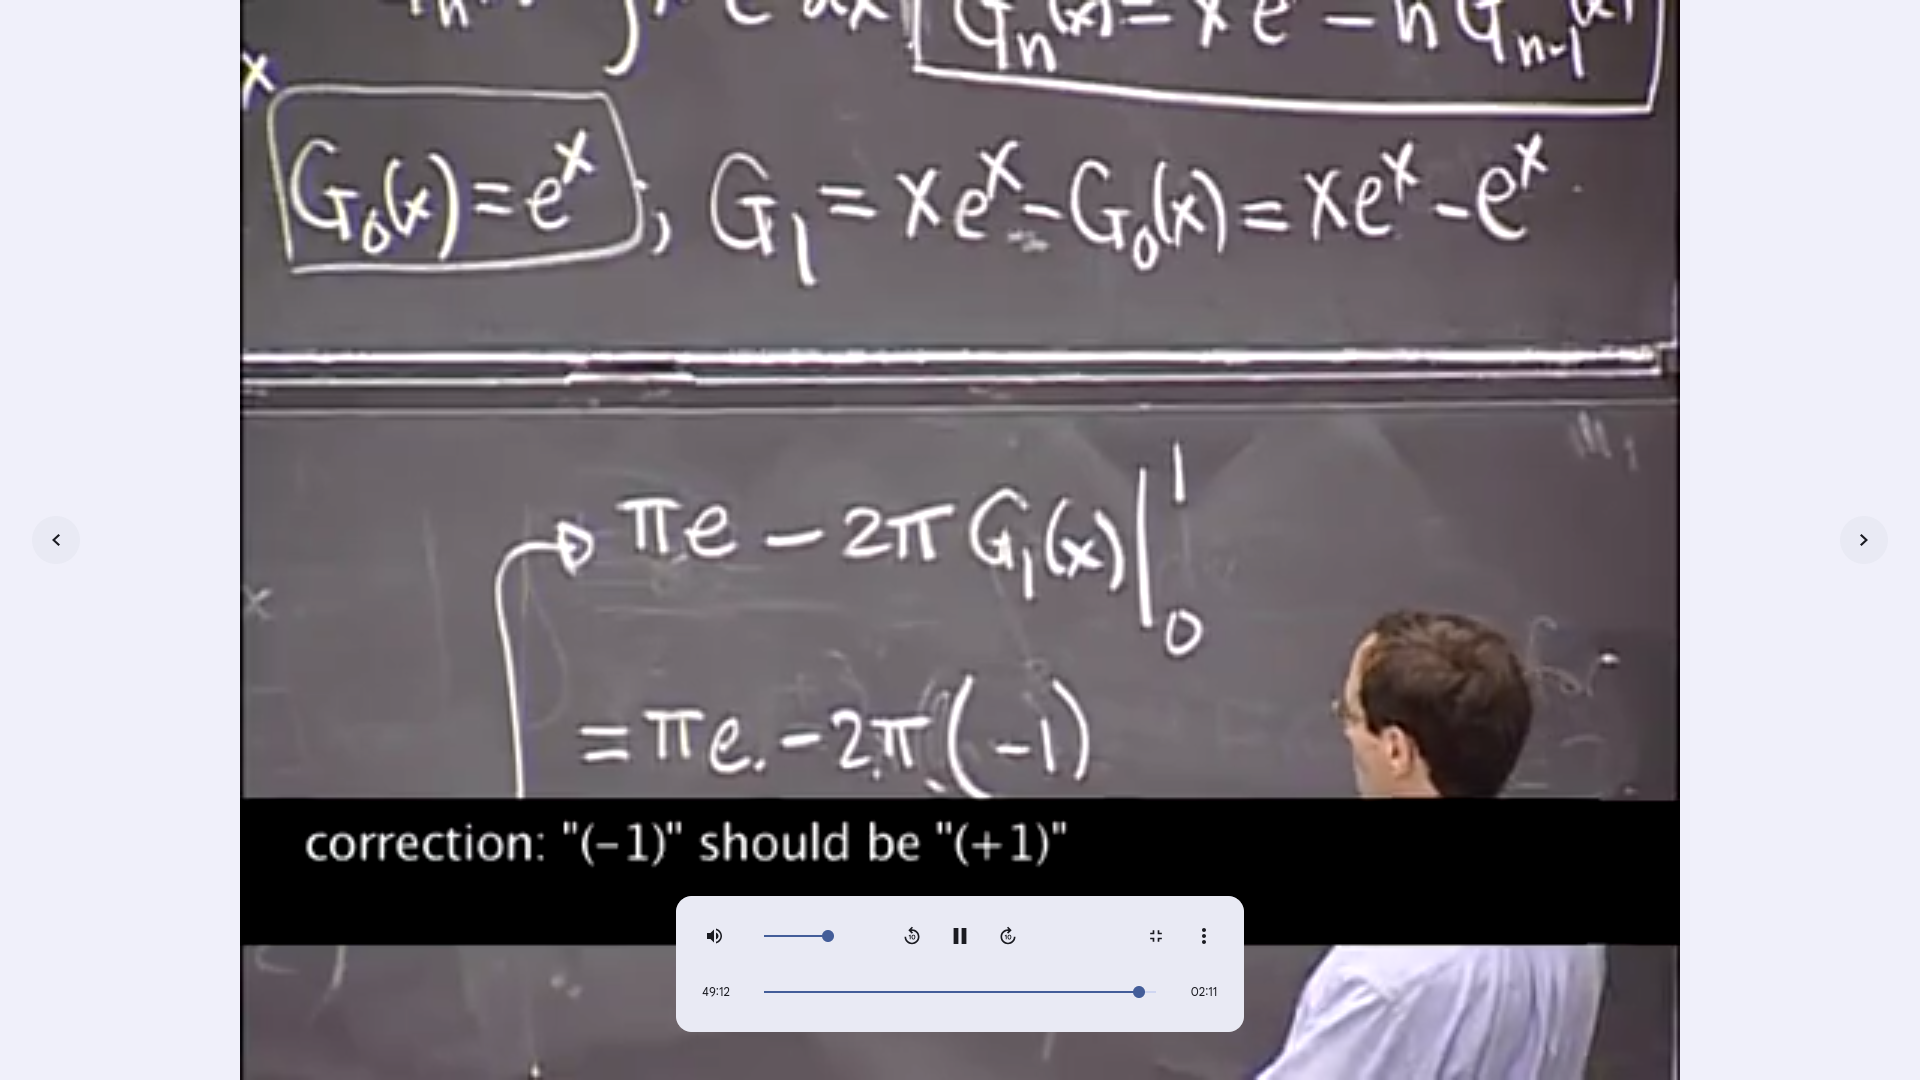 G_n(x) = x e - n G_{n-1}(x)
x
G_0(x) = e^x ; G_1 = xe^x - G_0(x) = xe^x - e^x
πe - 2π G_1(x) |_0^1
x
= πe - 2π(-1)
correction: "(-1)" should be "(+1)"
10 10
49:12 02:11